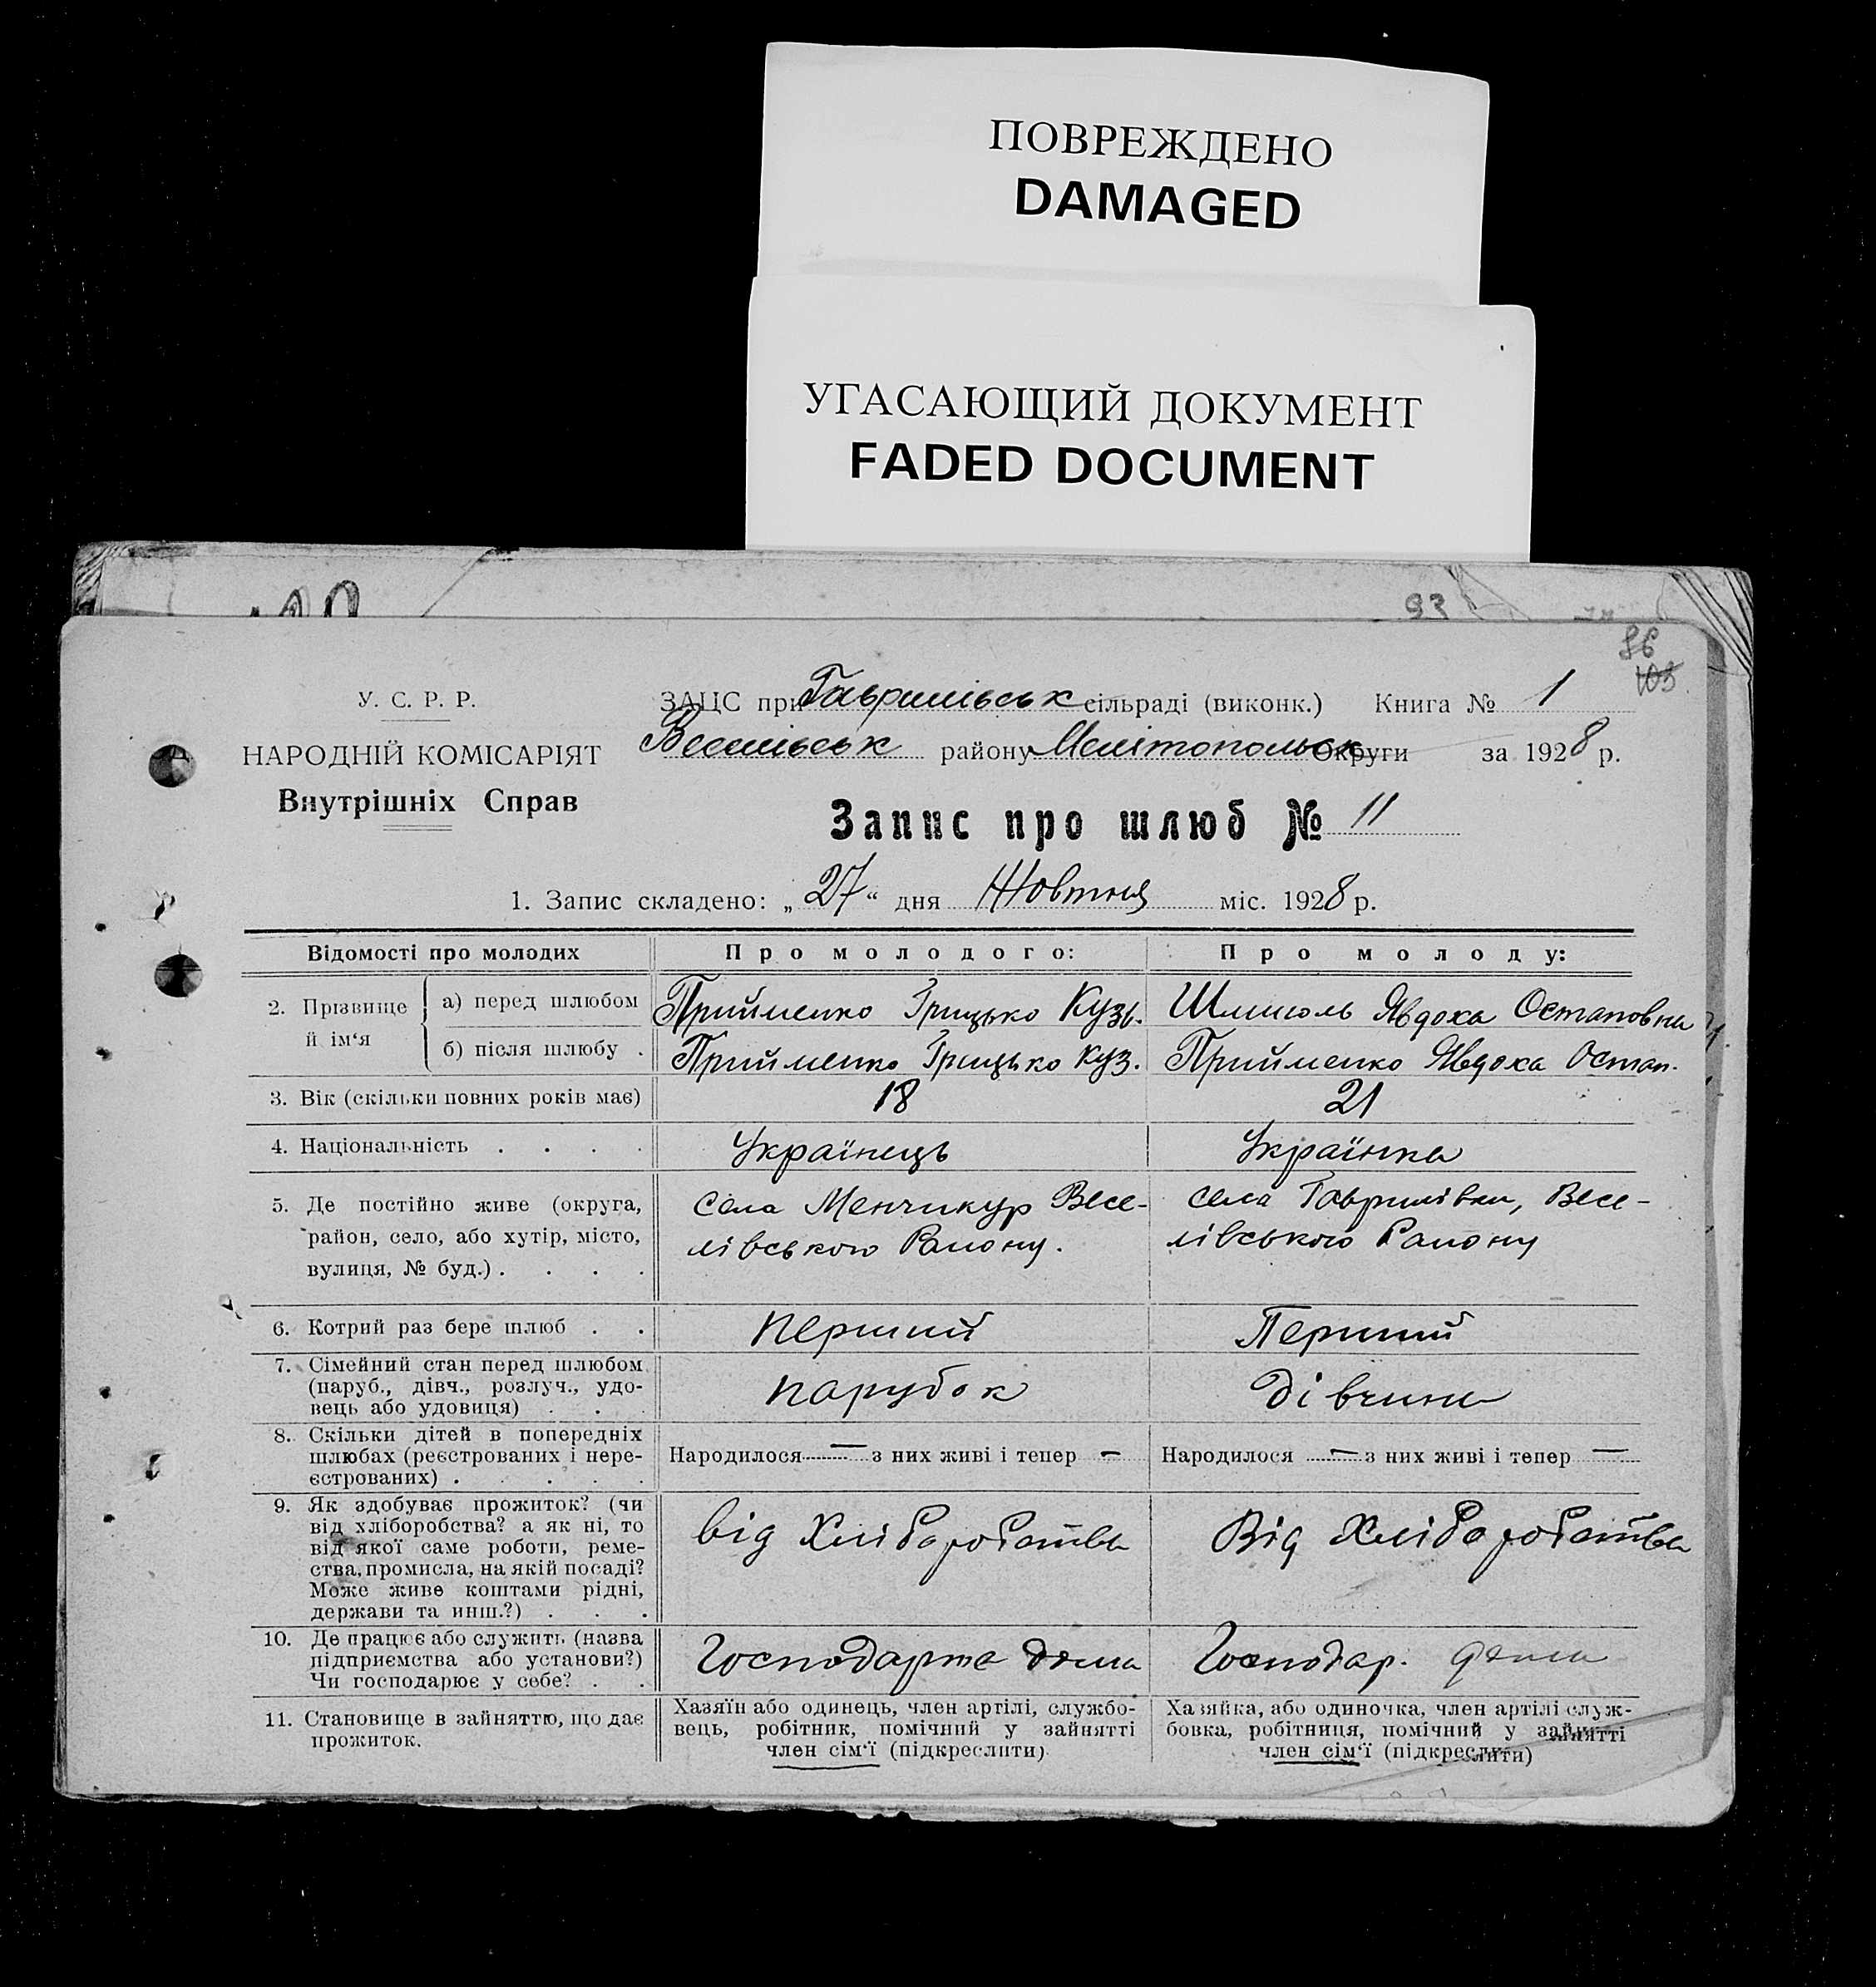 ПОВРЕЖДЕНО
DAMAGED
УГАСАЮЩИЙ ДОКУМЕНТ
FADED DOCUMENT
93
86
103
У. С. Р. Р.
НАРОДНІЙ КОМІСАРІЯТ
Внутрішніх Справ
ЗАЦС при Гаврилівськ сільраді (виконк.) Книга № 1
Веселівськ району Мелітопольськ Округи за 1928 р.
Запис про шлюб № 11
1. Запис складено: „27“ дня Жовтня міс. 1928 р.
Відомості про молодих
Про молодого:
Про молоду:
2. Прізвище й ім‘я
а) перед шлюбом
Прийменко Грицько Кузь.
Явдоха Остаповна
б) після шлюбу .
Прийменко Грицько Куз.
Прийменко Явдоха Остап.
3. Вік (скільки повних років має)
18
21
4. Національність . . . .
Українець
Українка
5. Де постійно живе (округа,
район, село, або хутір, місто,
вулиця, № буд.) . . . .
Села Менчикур Весе-
лівського Району.
Села Гаврилівки, Весе-
лівського Району
6. Котрий раз бере шлюб . .
Перший
Перший
7. Сімейний стан перед шлюбом
(паруб., дівч., розлуч., удо-
вець або удовиця) . . .
парубок
дівчина
8. Скільки дітей в попередніх
шлюбах (реєстрованих і нере-
єстрованих) . . . . .
Народилося — з них живі і тепер —
Народилося — з них живі і тепер —
9. Як здобуває прожиток? (чи
від хліборобства? а як ні, то
від якої саме роботи, реме-
ства, промисла, на якій посаді?
Може живе коштами рідні,
держави та инш.?) . . .
від Хліборобства
Від Хліборобства
10. Де працює або служить (назва
підприємства або установи?)
Чи господарює у себе? . .
Господарте дома
Господар. дома
11. Становище в зайняттю, що дає
прожиток.
Хазяїн або одинець, член артілі, службо-
вець, робітник, помічний у зайнятті
член сім‘ї (підкреслити)
Хазяйка, або одиночка, член артілі служ-
бовка, робітниця, помічний у зайнятті
член сім‘ї (підкреслити)